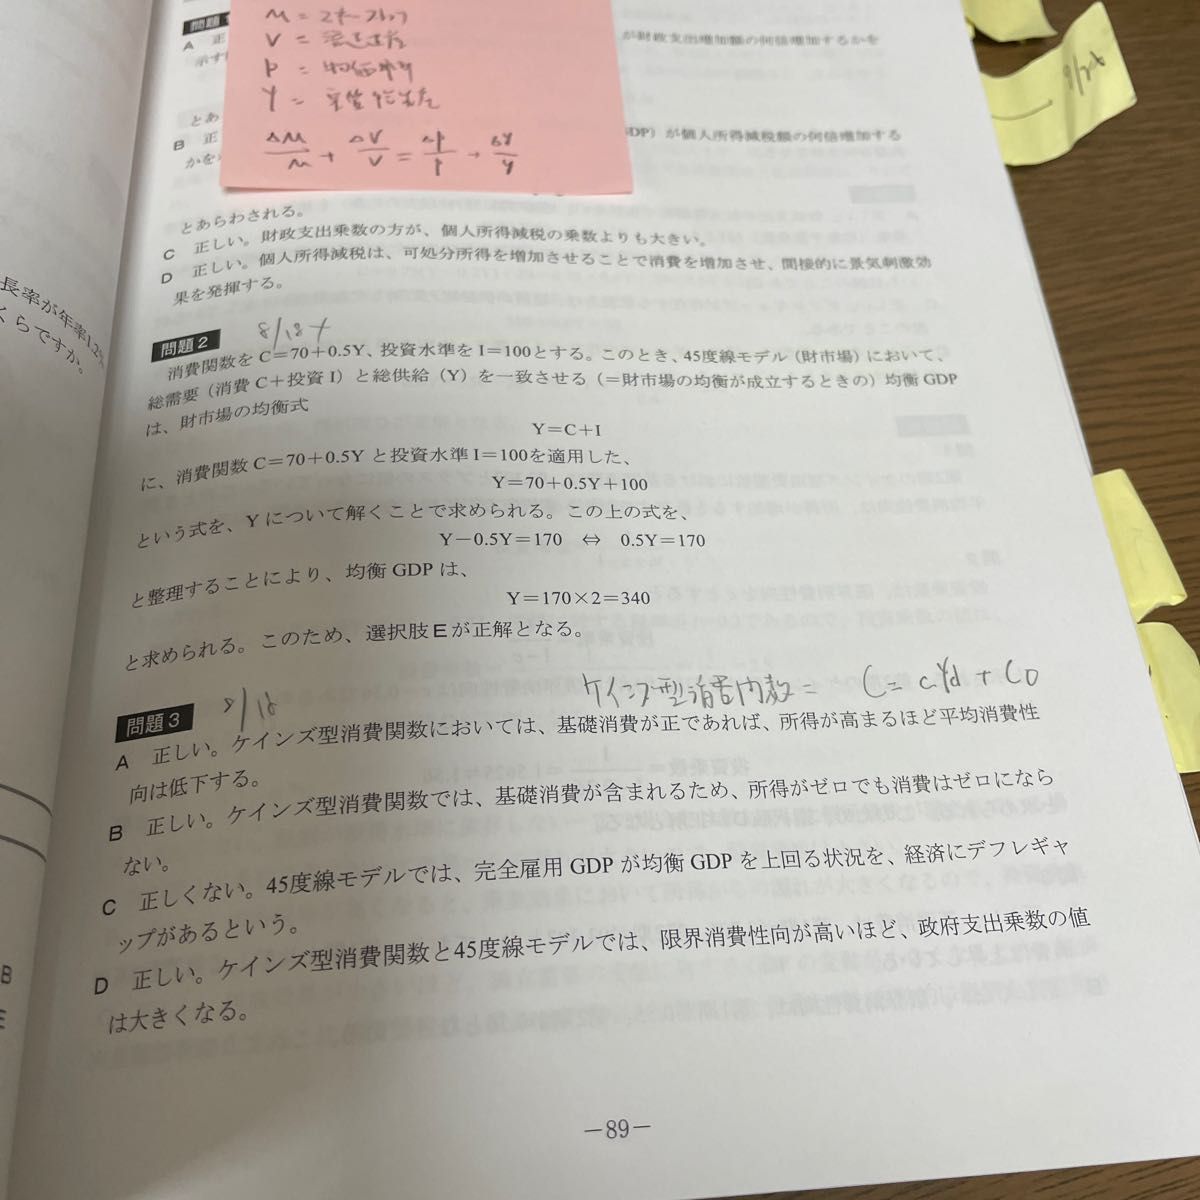 M = マネーストック
V =
P = 物価水準
Y =
ΔM/M + ΔV/V = ΔP/P + ΔY/Y
9/24
問題
A 正
が財政支出増加額の何倍増加するかを
示す
とあ
B 正
GDP）が個人所得減税額の何倍増加する
かを
とあらわされる。
C 正しい。財政支出乗数の方が、個人所得減税の乗数よりも大きい。
D 正しい。個人所得減税は、可処分所得を増加させることで消費を増加させ、間接的に景気刺激効
果を発揮する。
長率が年率1.2%
くらですか。
問題2 8/18
消費関数を C=70+0.5Y、投資水準を I=100とする。このとき、45度線モデル（財市場）において、
総需要（消費 C+投資 I）と総供給（Y）を一致させる（=財市場の均衡が成立するときの）均衡 GDP
は、財市場の均衡式
Y=C+I
に、消費関数 C=70+0.5Y と投資水準 I=100を適用した、
Y=70+0.5Y+100
という式を、Y について解くことで求められる。この上の式を、
Y-0.5Y=170 ⇔ 0.5Y=170
と整理することにより、均衡 GDP は、
Y=170×2=340
と求められる。このため、選択肢Eが正解となる。
ケインズ型消費関数 = C = cYd + C0
問題3 8/18
A 正しい。ケインズ型消費関数においては、基礎消費が正であれば、所得が高まるほど平均消費性
向は低下する。
B 正しい。ケインズ型消費関数では、基礎消費が含まれるため、所得がゼロでも消費はゼロになら
ない。
C 正しくない。45度線モデルでは、完全雇用 GDP が均衡 GDP を上回る状況を、経済にデフレギャ
ップがあるという。
D 正しい。ケインズ型消費関数と45度線モデルでは、限界消費性向が高いほど、政府支出乗数の値
は大きくなる。
B
E
—89—